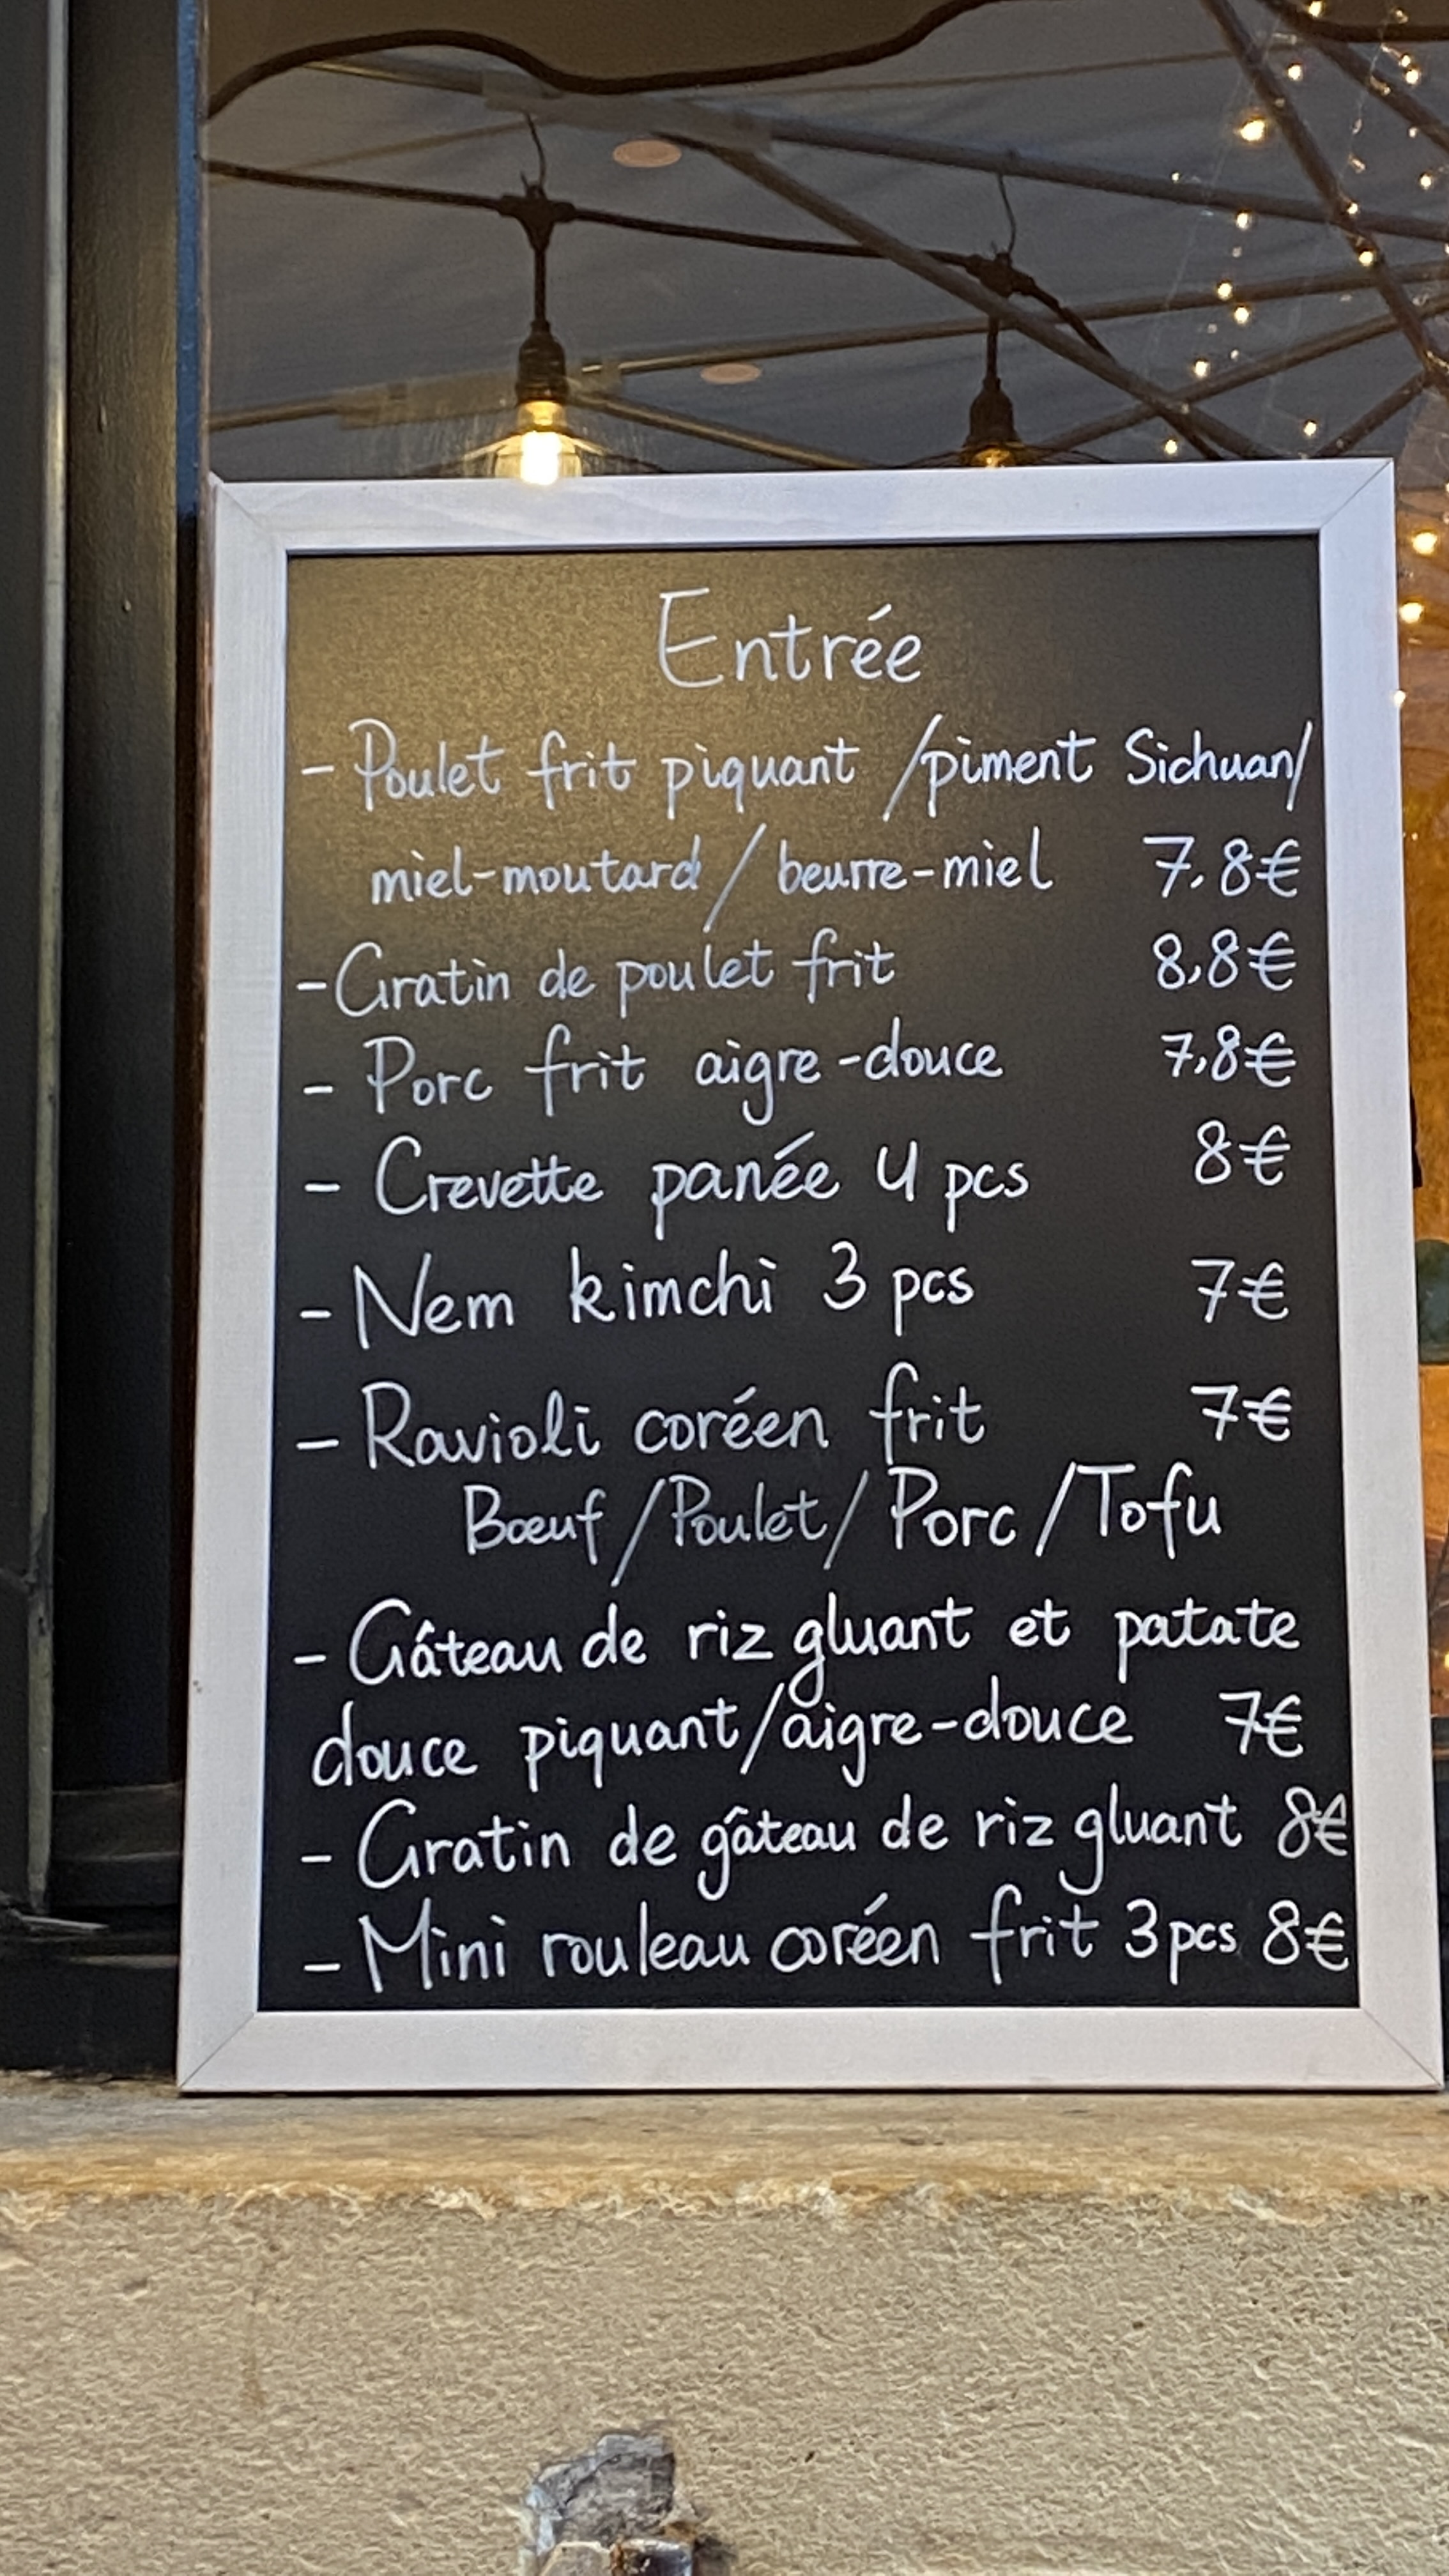 Entrée
- Poulet frit piquant /piment Sichuan/
miel-moutard / beurre-miel 7.8€
- Gratin de poulet frit 8,8€
- Porc frit aigre-douce 7,8€
- Crevette panée 4 pcs 8€
- Nem kimchi 3 pcs 7€
- Ravioli coréen frit 7€
Bœuf / Poulet / Porc / Tofu
- Gâteau de riz gluant et patate
douce piquant/aigre-douce 7€
- Gratin de gâteau de riz gluant 8€
- Mini rouleau coréen frit 3 pcs 8€